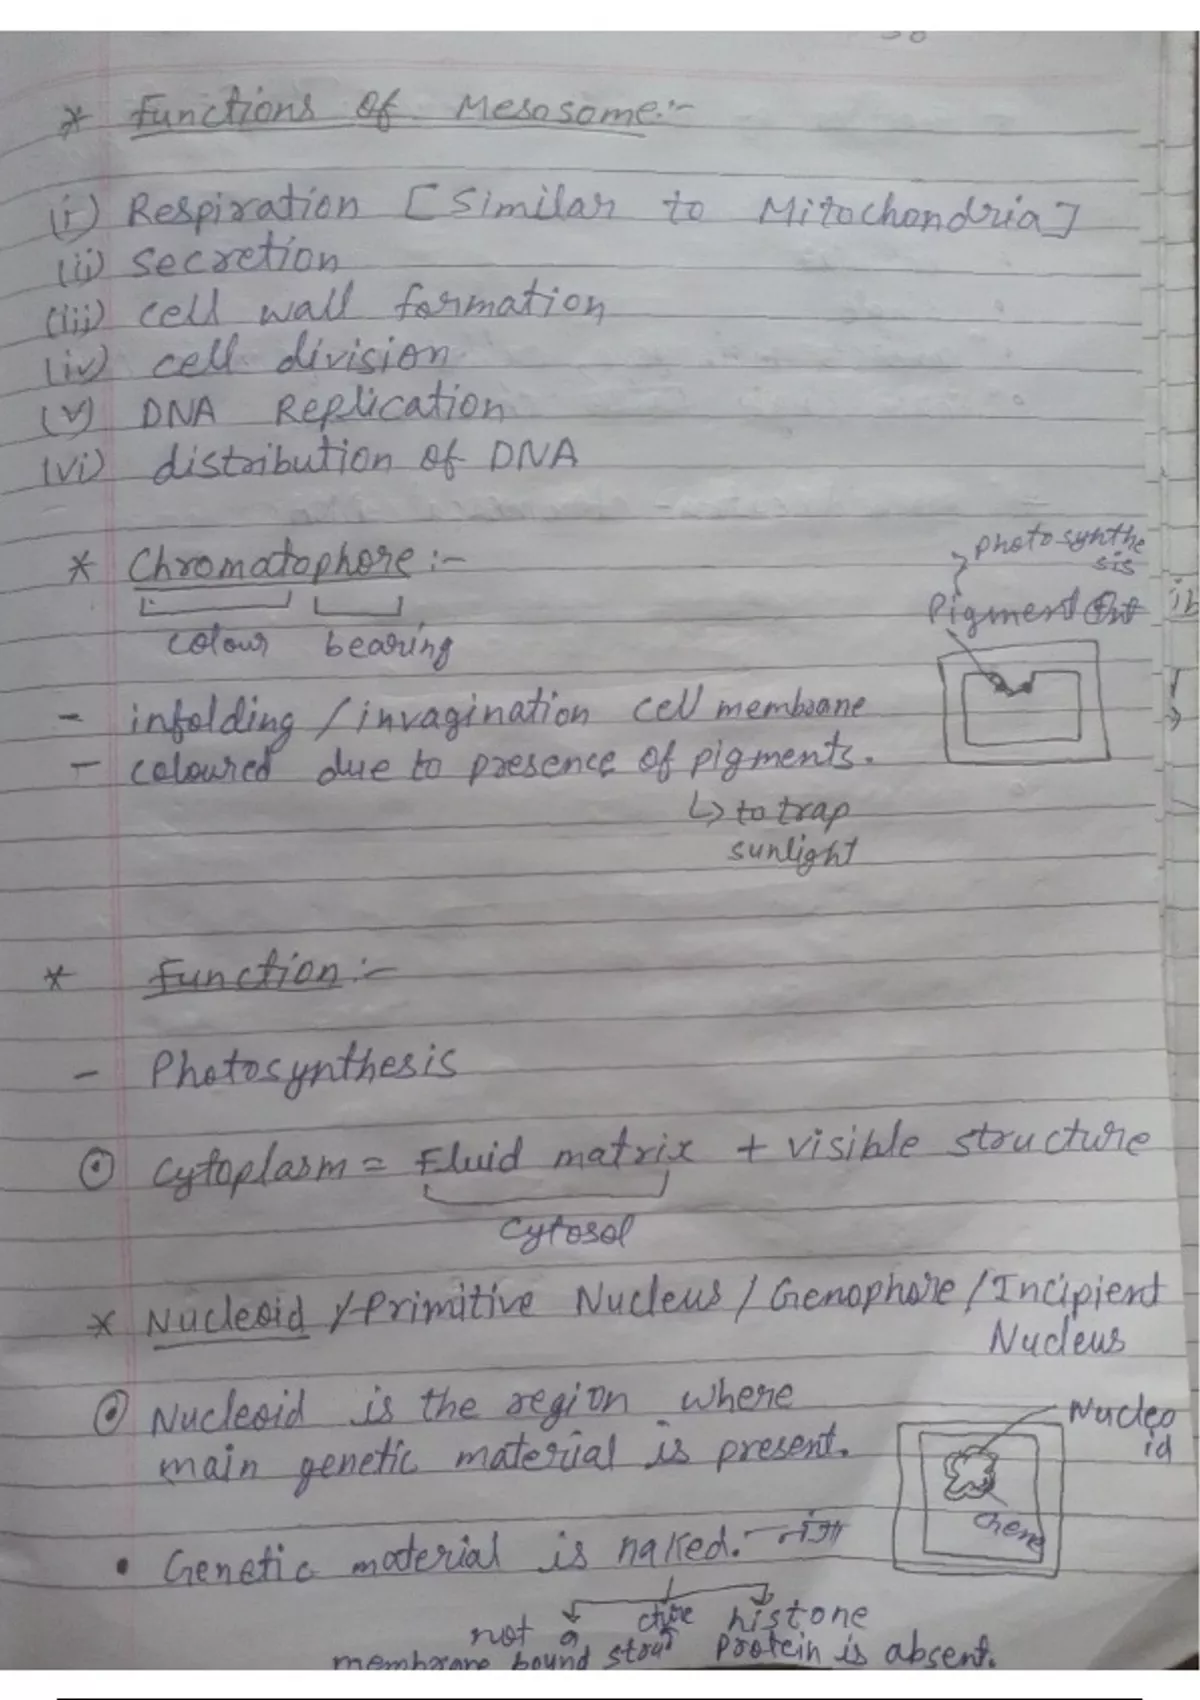 * Functions of Mesosome:-
(i) Respiration [Similar to Mitochondria]
(ii) secretion
(iii) cell wall formation
(iv) cell division
(v) DNA Replication
(vi) distribution of DNA
* Chromatophore :-
colour bearing
photosynthe
sis
Pigment
- infolding / invagination cell membrane
- coloured due to presence of pigments.
↳ to trap
sunlight
* Function :-
- Photosynthesis
⊙ Cytoplasm = Fluid matrix + visible structure
Cytosol
* Nucleoid / Primitive Nucleus / Genophore / Incipient
Nucleus
⊙ Nucleoid is the region where
main genetic material is present.
Nucleo
id
• Genetic material is naked. - नंगा
not a membrane bound structure
histone protein is absent.